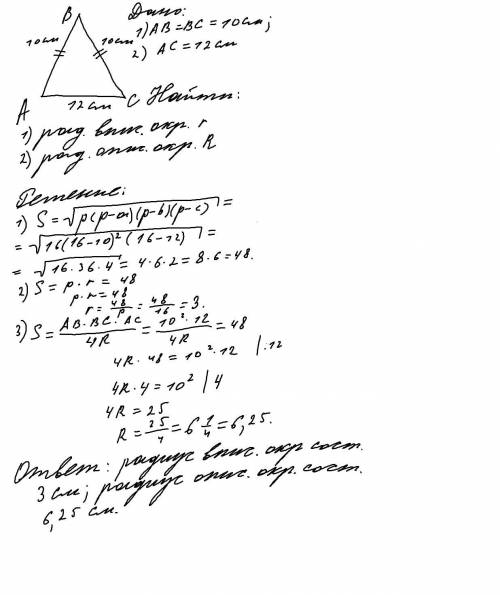 B
Дано:
1) AB = BC = 10 см;
2) AC = 12 см
10 см
10 см
A
12 см
C
Найти:
1) рад. впис. окр. r
2) рад. опис. окр. R
Решение:
1) S = √p(p-a)(p-b)(p-c) =
= √16(16-10)²(16-12) =
= √16·36·4 = 4·6·2 = 8·6 = 48.
2) S = p·r = 48
p·r = 48
r = 48/p = 48/16 = 3.
3) S = AB·BC·AC/4R = 10²·12/4R = 48
4R·48 = 10²·12 |:12
4R·4 = 10² | 4
4R = 25
R = 25/4 = 6 1/4 = 6,25.
Ответ: радиус впис. окр. сост.
3 см; радиус опис. окр. сост.
6,25 см.